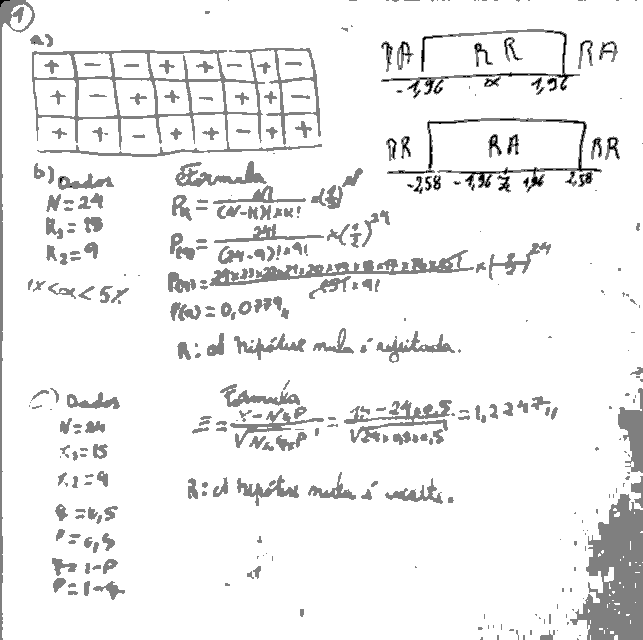 1
a)
+ − − + + − + −
+ − + + − + + −
+ + − + + − + +
RA RR RA
-1,96 α 1,96
RR RA RR
-2,58 -1,96 Z 1,96 2,58
b) Dados
N = 24
K₁ = 15
K₂ = 9
1% < α < 5%
Fórmula
Pκ = N! / (N-K)! × K! × (1/2)^N
P(9) = 24! / (24-9)! × 9! × (1/2)^24
P(κ) = 0,0779
R: A hipótese nula é rejeitada.
c) Dados
N = 24
X₁ = 15
X₂ = 9
q = 0,5
P = 0,5
q = 1-P
P = 1-q
Fórmula
Z = X - N×P / √N×q×P = 15 - 24×0,5 / √24×0,5×0,5 = 1,2247
R: A hipótese nula é